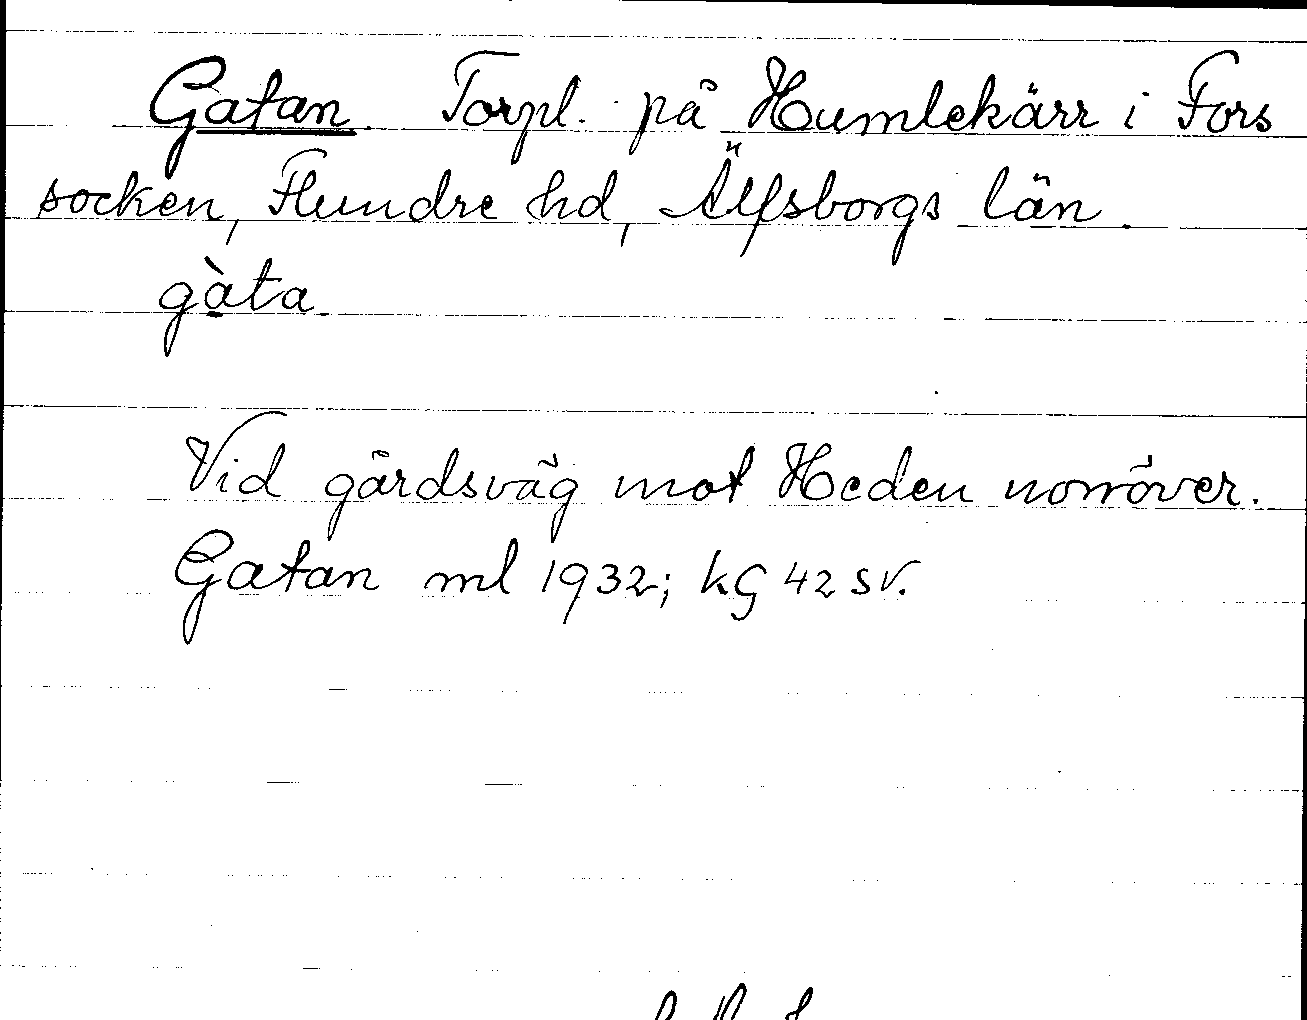 Gatan Torpl. på Humlekärr i Fors
socken, Flundre hd, Älfsborgs län.
gàta
Vid gårdsväg mot Heden norröver.
Gatan ml 1932; kG 42 sv.